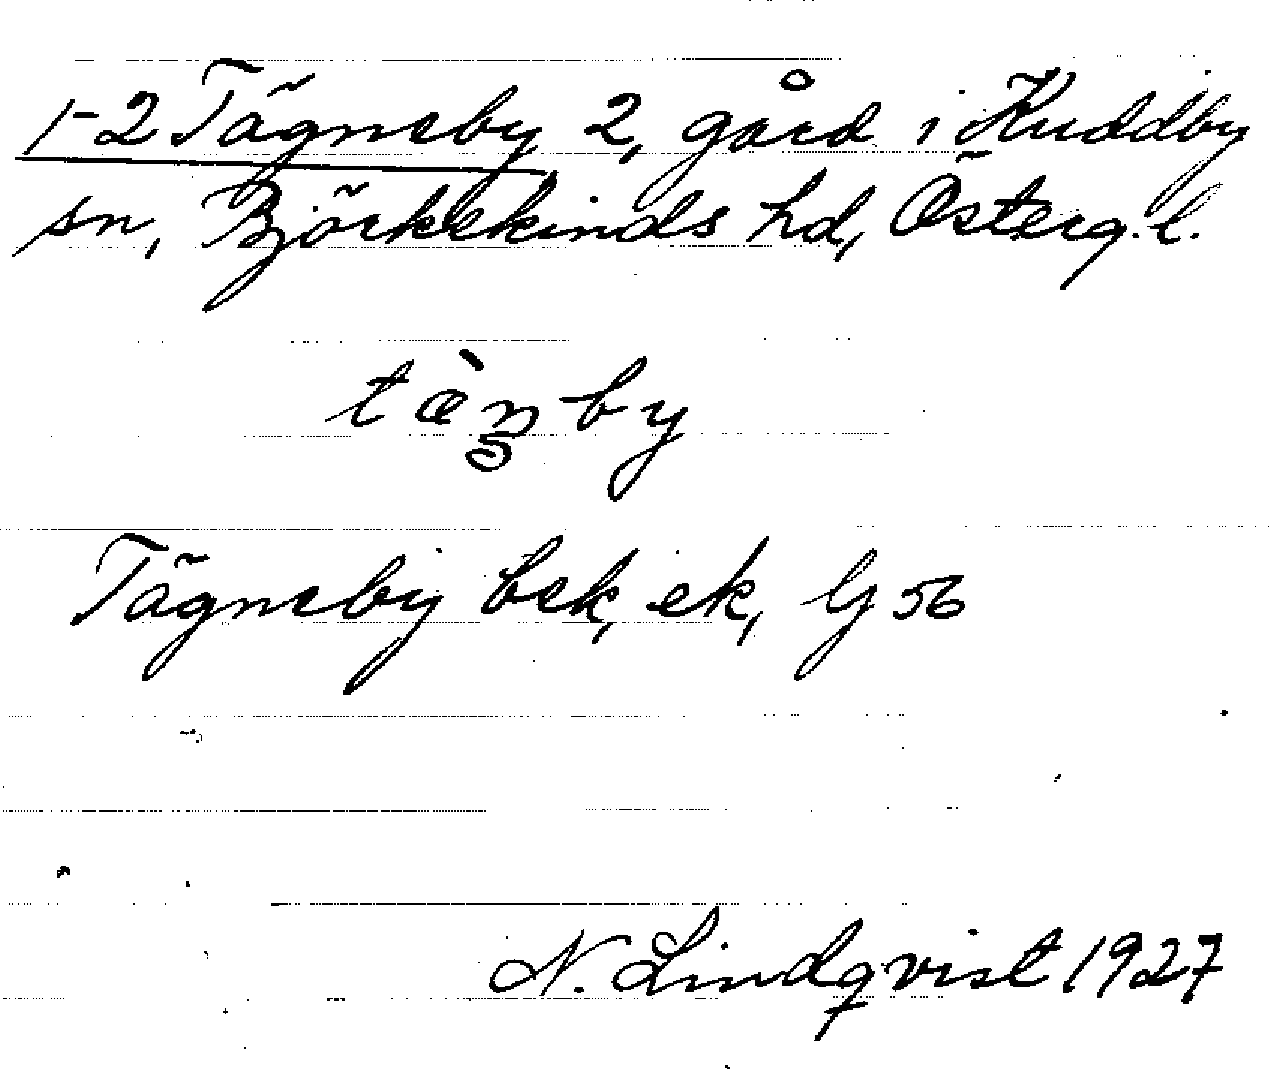 1-2 Tägneby 2, gård i Kuddby
sn, Björkekinds hd, Österg. l.
tæ̀ŋby
Tägneby bek, ek, G 56
N. Lindqvist 1927